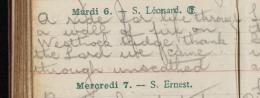 Mardi 6. — S. Léonard. ☾
A ride for life through
a wall of fire on
Westhock Lodge thank
the Lord we came
through unscathed
Mercredi 7. — S. Ernest.